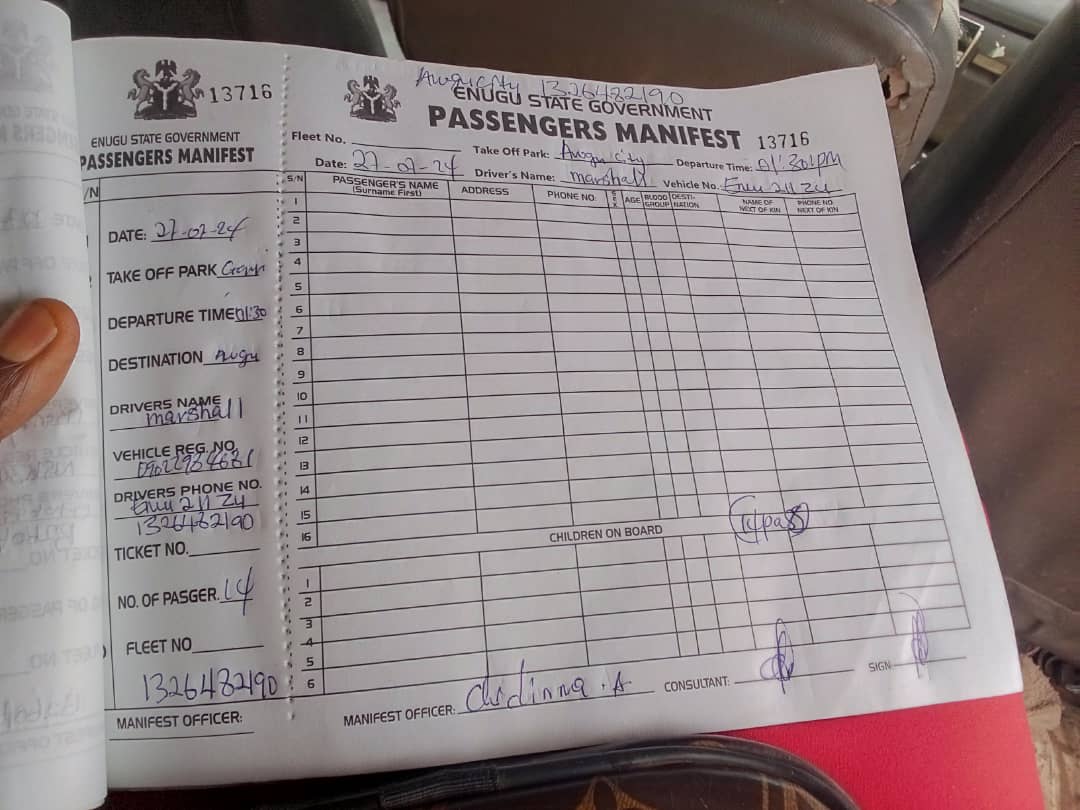 13716
ENUGU STATE GOVERNMENT
PASSENGERS MANIFEST
/N
DATE: 27-07-24
TAKE OFF PARK
DEPARTURE TIME 01:30
DESTINATION Awgu
DRIVERS NAME
marshall
VEHICLE REG. NO.
DRIVERS PHONE NO.
1326482190
TICKET NO.
NO. OF PASGER. 14
FLEET NO
1326482190
MANIFEST OFFICER:
Awgu city 1326482190
ENUGU STATE GOVERNMENT
PASSENGERS MANIFEST 13716
Fleet No. Take Off Park: Awgu city Departure Time: 01:30PM
Date: 27-07-24 Driver's Name: marshall Vehicle No.
S/N PASSENGER'S NAME (Surname First) ADDRESS PHONE NO: SEX AGE BLOOD GROUP DESTI-NATION NAME OF NEXT OF KIN PHONE NO. NEXT OF KIN
1
2
3
4
5
6
7
8
9
10
11
12
13
14
15
16 CHILDREN ON BOARD 14pas
1
2
3
4
5
6
MANIFEST OFFICER: Chidinna .A CONSULTANT: SIGN